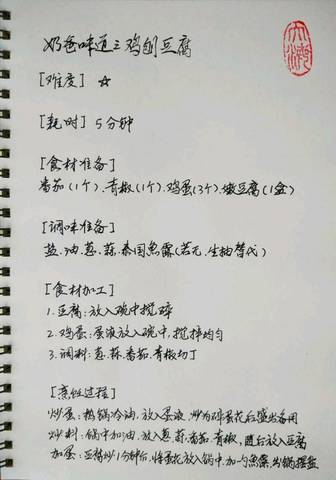 奶爸味道之鸡刨豆腐
[难度] ☆
[耗时] 5分钟
[食材准备]
番茄(1个).青椒(1个).鸡蛋(3个).嫩豆腐(1盒)
[调味准备]
盐.油.葱.蒜.泰国鱼露(若无.生抽替代)
[食材加工]
1.豆腐:放入碗中搅碎
2.鸡蛋:蛋液放入碗中.搅拌均匀
3.调料:葱.蒜.番茄.青椒切丁
[烹饪过程]
炒蛋:热锅冷油.放入蛋液.炒为碎蛋花后盛出备用
炒料:锅中加油.放入葱.蒜.番茄.青椒,随后放入豆腐
加蛋:豆腐炒1分钟后,将蛋花放入锅中.加一勺鱼露.出锅摆盘